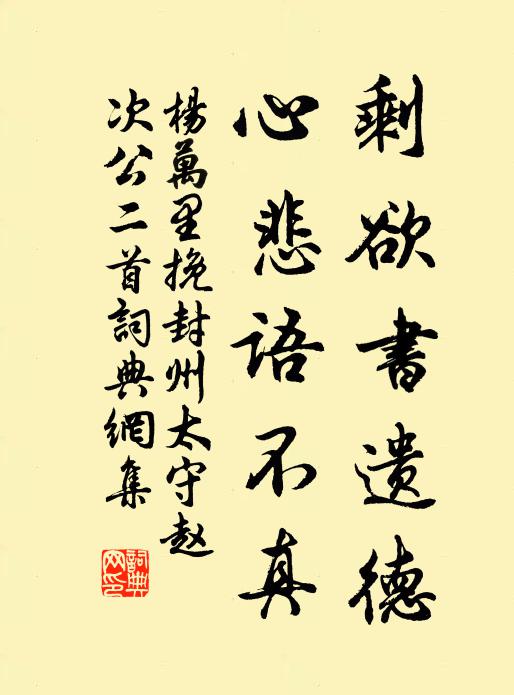 剩欲書遺德
心悲語不真
楊萬里挽封州太守赵
次公二首詞典網集
詞典
网印